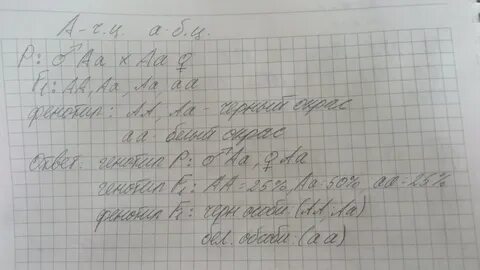 А-ч.ц. а б.ц.
Р: ♂ Аа х Аа ♀
F₁: АА, Аа, Аа, аа
фенотип: АА, Аа - черный окрас
аа - белый окрас
Ответ: генотип Р: ♂Аа, ♀Аа
генотип F₁: АА-25%, Аа-50%, аа-25%
фенотип F₁: черн особи (АА, Аа)
бел. особи (аа)